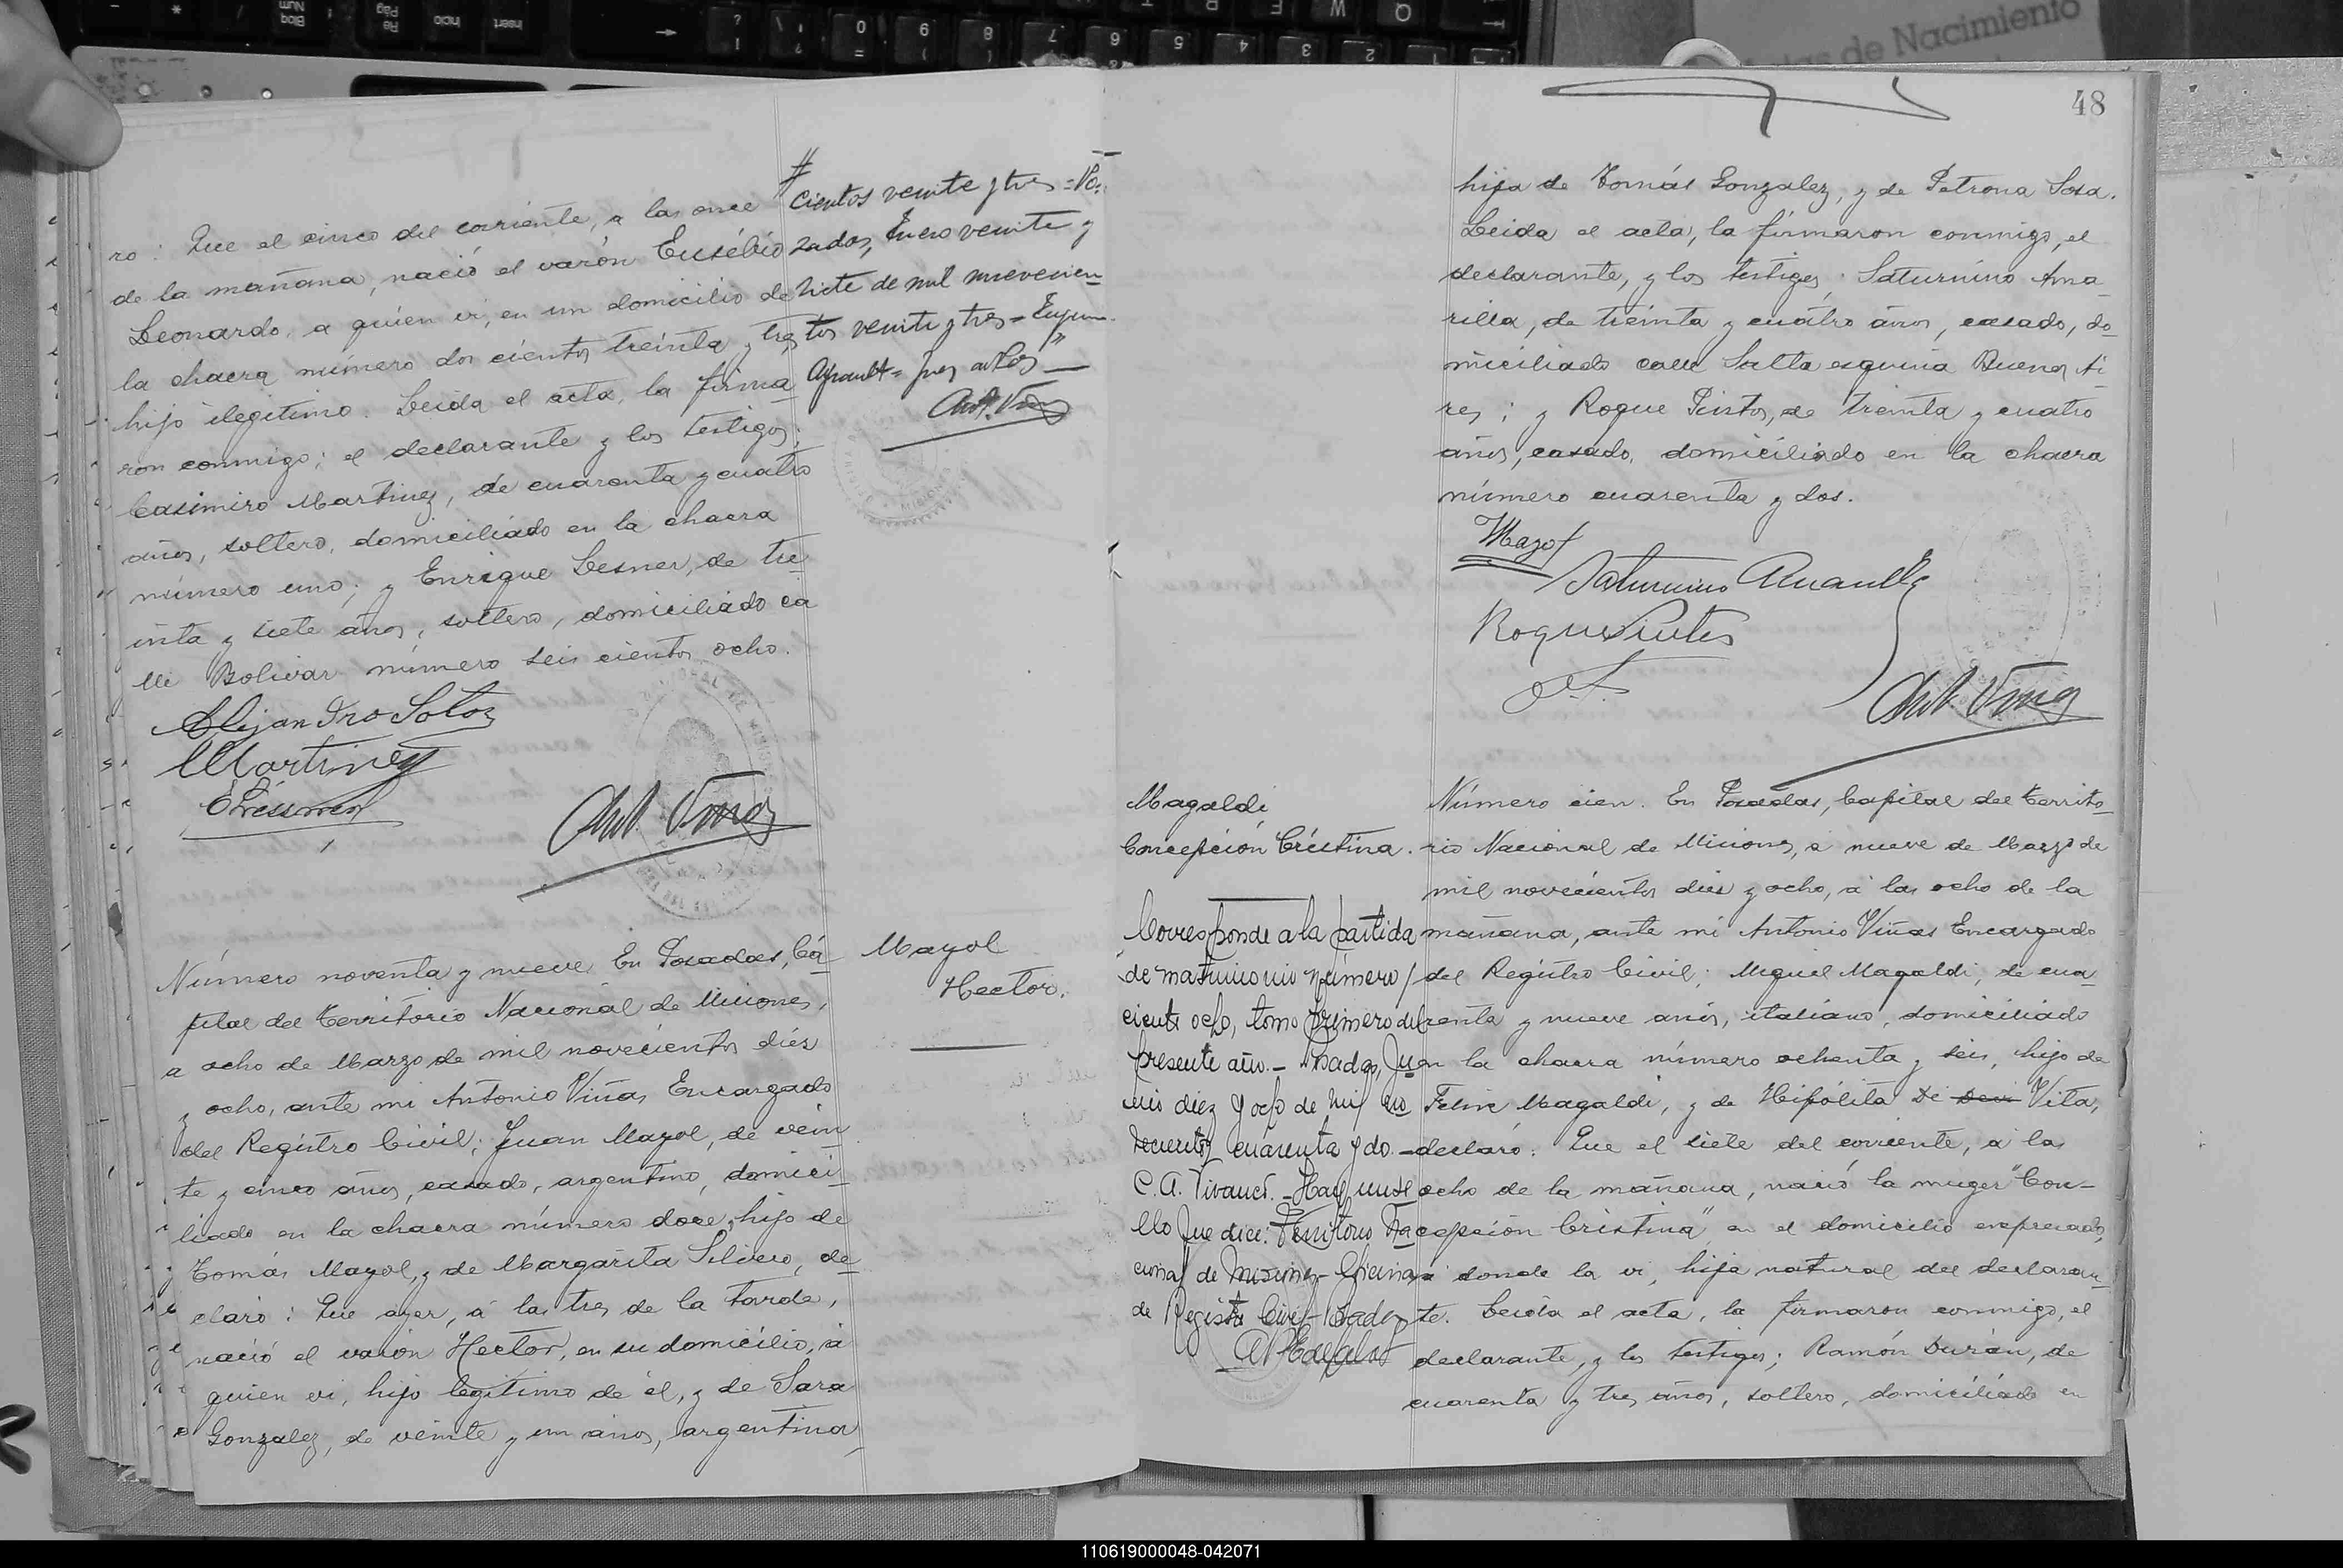 ro: Que el cinco del corriente, a las once
de la mañana, nació el varón Eusébio
Leonardo, a quien vi, en un domicilio de
la chacra número dos cientos treinta y tres,
hijo ilegitimo. Leida el acta, la firma
ron conmigo; el declarante y los testigos:
Casimiro Martinez, de cuarenta y cuatro
años, soltero, domiciliado en la chacra
número uno; y Enrique Lesner, de tre
inta y siete años, soltero, domiciliado ca
lle Bolivar número seis cientos ocho.
Alejandro Sotoz
Martinez
Ant. Viñas
#
cientos veinte y tres = Po
sadas, Enero veinte y
siete de mil novecien
tos veinte y tres =
Ant. Viñas
Número noventa y nueve. En Posadas, Ca
pital del Territorio Nacional de Misiones,
a ocho de Marzo de mil novecientos diéz
y ocho, ante mi Antonio Viñas Encargado
del Registro Civil; Juan Mayol, de vein
te y cinco años, casado, argentino, domici
liado en la chacra número doce, hijo de
Tomás Mayol, y de Margarita Silvero, de
claró: Que ayer, á las tres de la tarde,
nació el varón Hector, en su domicilio, á
quien vi, hijo legitimo de él, y de Sara
Gonzalez, de veinte y un años, argentina,
Mayol
Hector.
48
hija de Tomás Gonzalez, y de Petrona Sosa.
Leida el acta, la firmaron conmigo, el
declarante, y los testigos; Saturnino Ama
rilla, de treinta y cuatro años, casado, do
miciliado calle Salta esquina Buenos Ai
res; y Roque Pintos, de treinta y cuatro
años, casado, domiciliado en la chacra
número cuarenta y dos.
Mayol
Saturnino Amarilla
Roque Pintos
Ant. Viñas
Magaldi,
Concepción Cristina.
Número cien. En Posadas, Capital del Territo
rio Nacional de Misiones, a nueve de Marzo de
mil novecientos diez y ocho, á las ocho de la
mañana, ante mi Antonio Viñas Encargado
del Registro Civil; Miguel Magaldi, de cua
renta y nueve años, italiano, domiciliado
en la chacra número ochenta y seis, hijo de
Felix Magaldi, y de Hipólita Di Vita,
declaró: Que el siete del corriente, a las
ocho de la mañana, nació la muger "Con-
cepción Cristina" en el domicilio expresado,
a donde la vi, hija natural del declaran
te. Leida el acta, la firmaron conmigo, el
declarante, y los testigos; Ramón Durán, de
cuarenta y tres años, soltero, domiciliado en
Corresponde a la partida
de matrimonio número
ciento ocho, tomo primero del
presente año.- Posadas, Ju
nio diez y ocho de mil no
vecientos cuarenta y dos.-
C.A. Vivanco.- Hay un se
llo que dice: Territorio Na
cional de Misiones- Oficina
de Registro Civil- Posadas
110619000048-042071